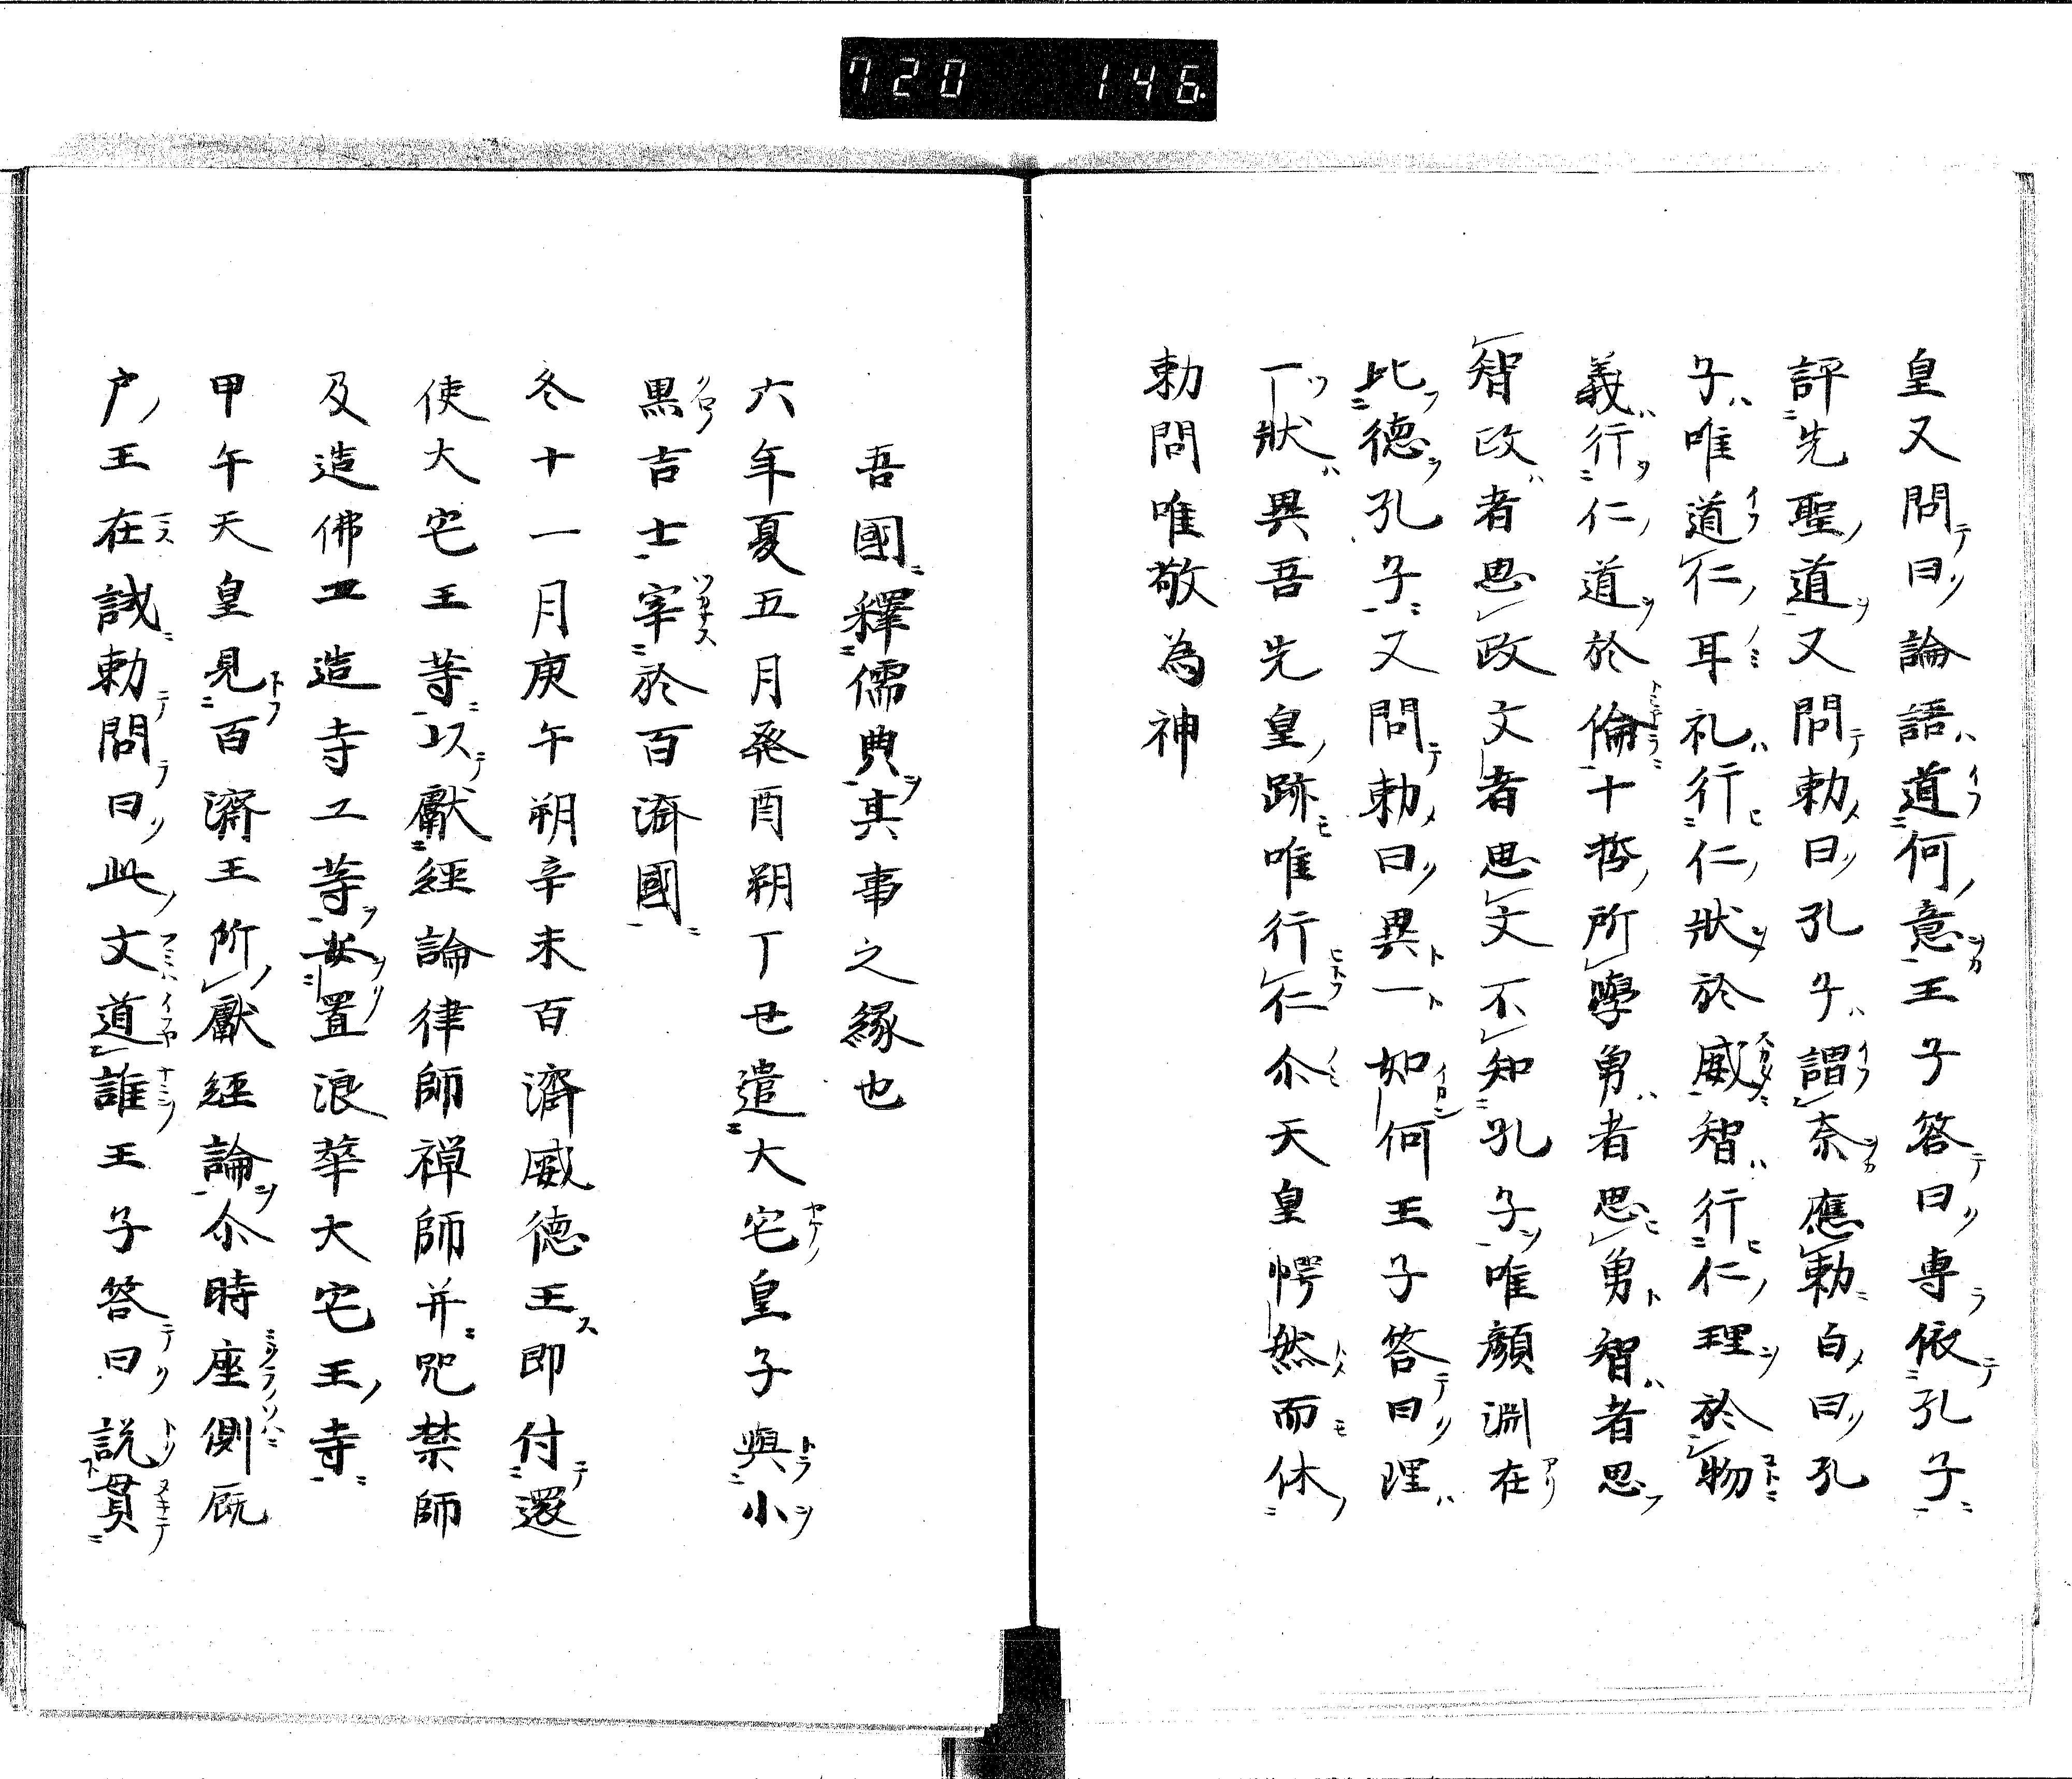 720 146.
皇又問曰論語道何意王子答曰專依孔子
評先聖道又問勅曰孔子謂奈應勅白曰孔
子唯道仁耳礼行仁狀於威智行仁理於物
義行仁道於倫十哲所學勇者思勇智者思
智政者思政文者思文不知孔子唯顏淵在
此德孔子又問勅曰異一如何王子答曰理
一狀異吾先皇跡唯行仁尒天皇愕然而休
勅問唯敬為神
吾國釋儒典其事之緣也
六年夏五月癸酉朔丁丑遣大宅皇子與小
黒吉士宰於百濟國
冬十一月庚午朔辛未百濟威德王即付還
使大宅王等以獻經論律師禅師并咒禁師
及造佛工造寺工等安置浪華大宅王寺
甲午天皇見百濟王所獻經論尒時座側厩
户王在誠勅問曰此文道誰王子答曰説貫